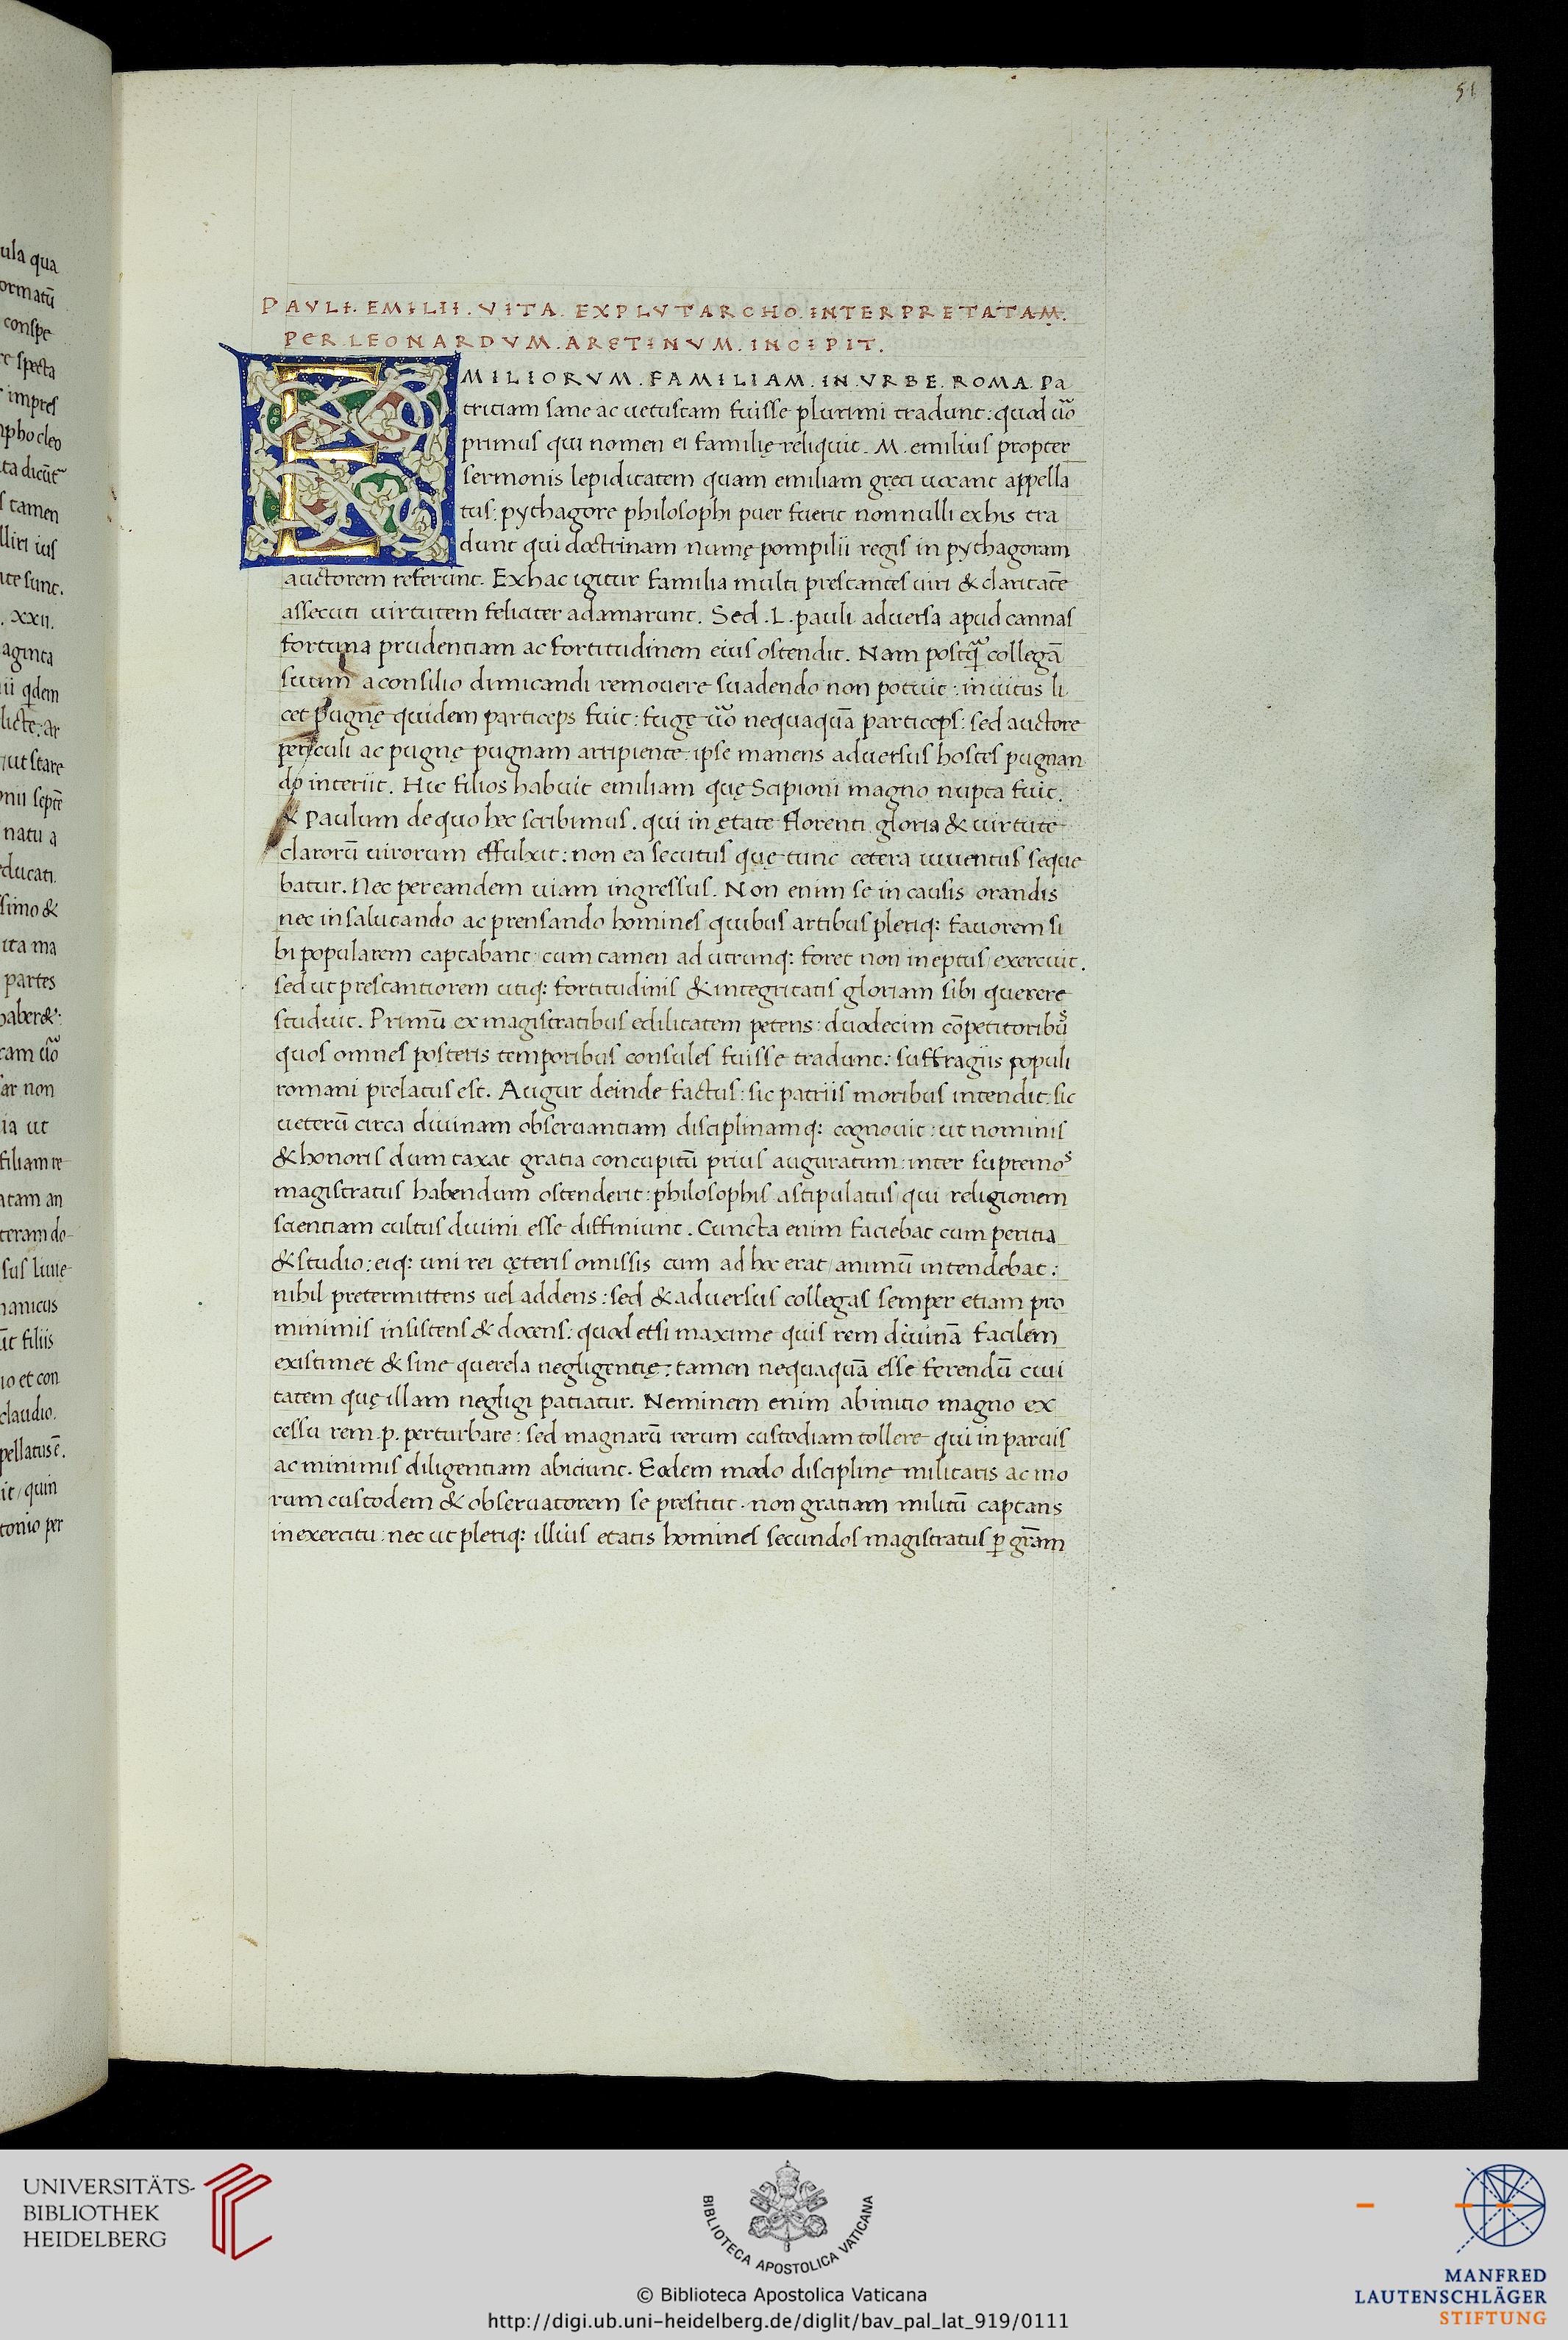 51
PAVLI. EMILII. VITA. EXPLVTARCHO. INTERPRETATAM.
PER. LEONARDVM. ARETINVM. INCIPIT.
EMILIORVM. FAMILIAM. IN. VRBE. ROMA. Pa
triciam sane ac uetustam fuisse plurimi tradunt: quod uo
primus qui nomen ei familię reliquit. M. emilius propter
sermonis lepiditatem quam emiliam greci uocant appella
tus: pythagore philosophi puer fuerit nonnulli ex his tra
dunt qui doctrinam numę pompilii regis in pythagoram
auctorem referunt. Ex hac igitur familia multi prestantes uiri & claritatē
assecuti uirtutem feliciter adamarunt. Sed .L. pauli aduersa apud cannas
fortuna prudentiam ac fortitudinem eius ostendit. Nam postq̃ collegā
suum a consilio dimicandi remouere suadendo non potuit: inuitus li
cet pugnę quidem particeps fuit: fugę uo nequaquā particeps: sed auctore
periculi ac pugnę pugnam arripiente: ipse manens aduersus hostes pugnan
do interiit. Hic filios habuit emiliam quę Scipioni magno nupta fuit.
& Paulum de quo hec scribimus. qui in ętate florenti gloria & uirtute
clarorū uirorum effulxit: non ea secutus quę tunc cetera iuuentus seque
batur. Nec per eandem uiam ingressus. Non enim se in causis orandis
nec in salutando ac prensando homines quibus artibus pleriq: fauorem si
bi popularem captabant: cum tamen ad utrunq: foret non ineptus exercuit.
sed ut prestantiorem utiq: fortitudinis & integritatis gloriam sibi querere
studuit. Primū ex magistratibus edilitatem petens: duodecim cōpetitoribus
quos omnes posteris temporibus consules fuisse tradunt: suffragiis populi
romani prelatus est. Augur deinde factus: sic patriis moribus intendit: sic
ueterū circa diuinam obseruantiam disciplinamq: cognouit: ut nominis
& honoris dum taxat gratia concupitū prius auguratum: inter supremos
magistratus habendum ostenderit: philosophis astipulatus qui religionem
scientiam cultus diuini esse diffiniunt. Cuncta enim faciebat cum peritia
& studio: eiq: uni rei cęteris omissis cum ad hoc erat/animū intendebat:
nihil pretermittens uel addens: sed & aduersus collegas semper etiam pro
minimis insistens & docens: quod etsi maxime quis rem diuinā facilem
existimet & sine querela negligentię: tamen nequaquā esse ferendū ciui
tatem quę illam negligi patiatur. Neminem enim ab initio magno ex
cessu rem .p. perturbare: sed magnarū rerum custodiam tollere qui in paruis
ac minimis diligentiam abiciunt. Eodem modo disciplinę militaris ac mo
rum custodem & obseruatorem se prestitit. non gratiam militū captans
in exercitu: nec ut pleriq: illius etatis homines secundos magistratus p grām
ula qua
ormatū
conspe
re specta
impres
mpho cleo
ta dicūt
s tamen
lliri ius
ite sunt.
. XXII.
aginta
ii qdem
licte: ar
ut stare
nii septē
natu a
educati.
simo &
ita ma
partes
haber&:
ram uo
ar non
ia ut
filiam re
atam an
teram do
sus liuię
manicus
ūt filiis
io et con
claudio.
pellatus ē.
it/quin
tonio per
UNIVERSITÄTS-
BIBLIOTHEK
HEIDELBERG
BIBLIOTECA APOSTOLICA VATICANA
© Biblioteca Apostolica Vaticana
http://digi.ub.uni-heidelberg.de/diglit/bav_pal_lat_919/0111
MANFRED
LAUTENSCHLÄGER
STIFTUNG